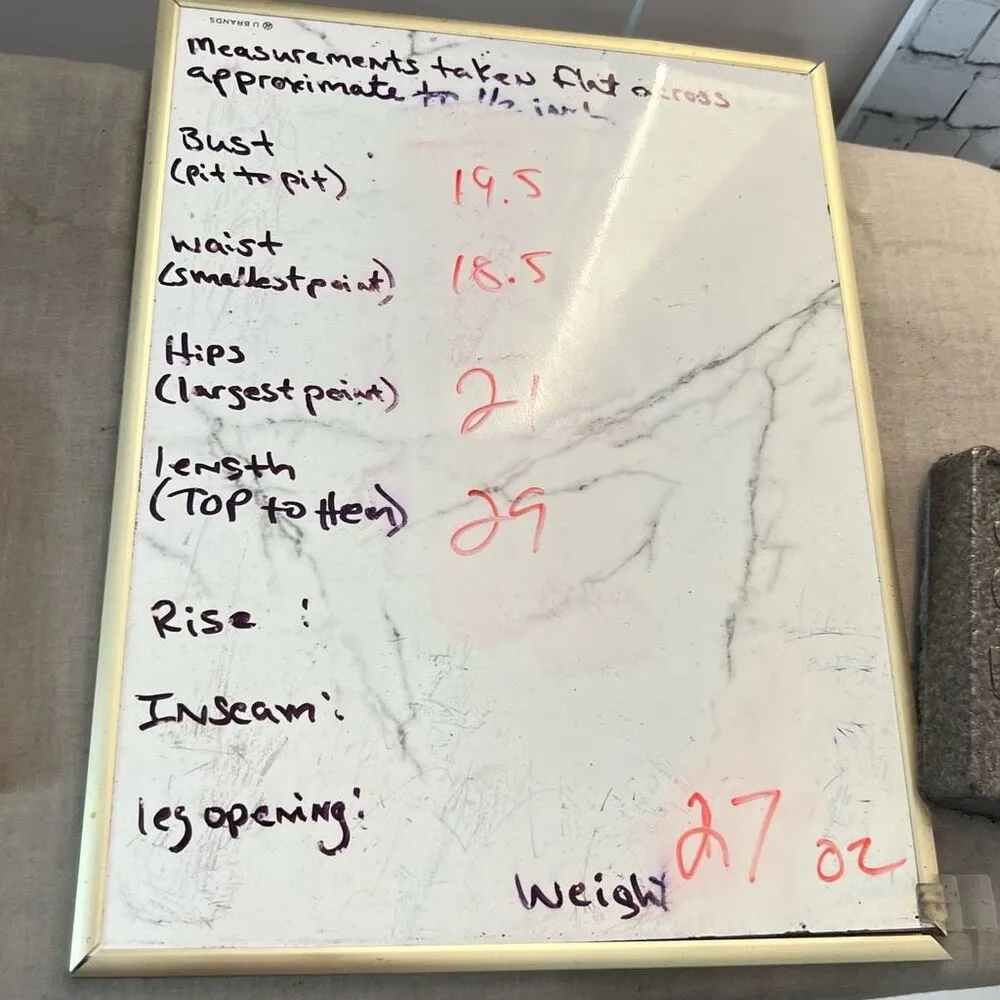 U BRANDS
measurements taken flat across
approximate to 1/2 inch
Bust
(pit to pit) 19.5
waist
(smallest point) 18.5
Hips
(largest point) 21
length
(TOP to Hem) 29
Rise :
Inseam:
leg opening:
27 oz
Weight